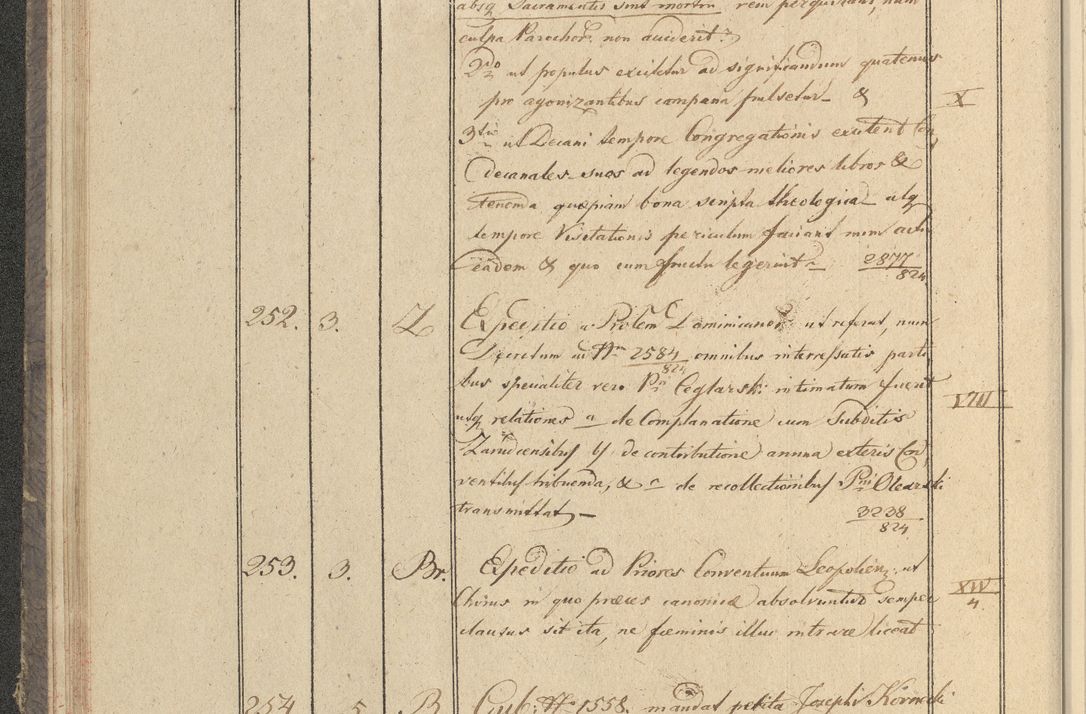 absq Sacramentis sint mortui rem perquirant, num
culpa Parochor. non acciderit?
2do ut populus excitetur ad significandum quatenus
pro agonizantibus campana pulsetur &
X
3tio ut Decani tempore Congregationis excitent Con
decanales suos ad legendos meliores libros &
tenenda quaepiam bona scripta theologica atq
tempore Visitationis periculum faciant num actu
eadem & quo cum fructu legerint 2877/824
252. 3. Z Expeditio a Prolem Dominicanor. ut referat, num
Decretum ad Nm 2584/824 omnibus interressatis parti
bus specialiter vero Pni Ceglarski intimatum fuerit
VIII
utq relationes a de Complanatione cum Subditis
Zarudcensibus b de contributione annua exteris Con
ventibus tribuenda, & c de recollectionibus Pni Olearski
transmittat — 3238/824
253. 3. Br. Expeditio ad Priores Conventuum Leopolien: ut
Chorus in quo preces canonicae absolvuntur semper
XIV/4
clausus sit ita, ne foeminis illuc intrare liceat
254. 5. B Gub: No 1558. mandat petita Josephi Kornecki